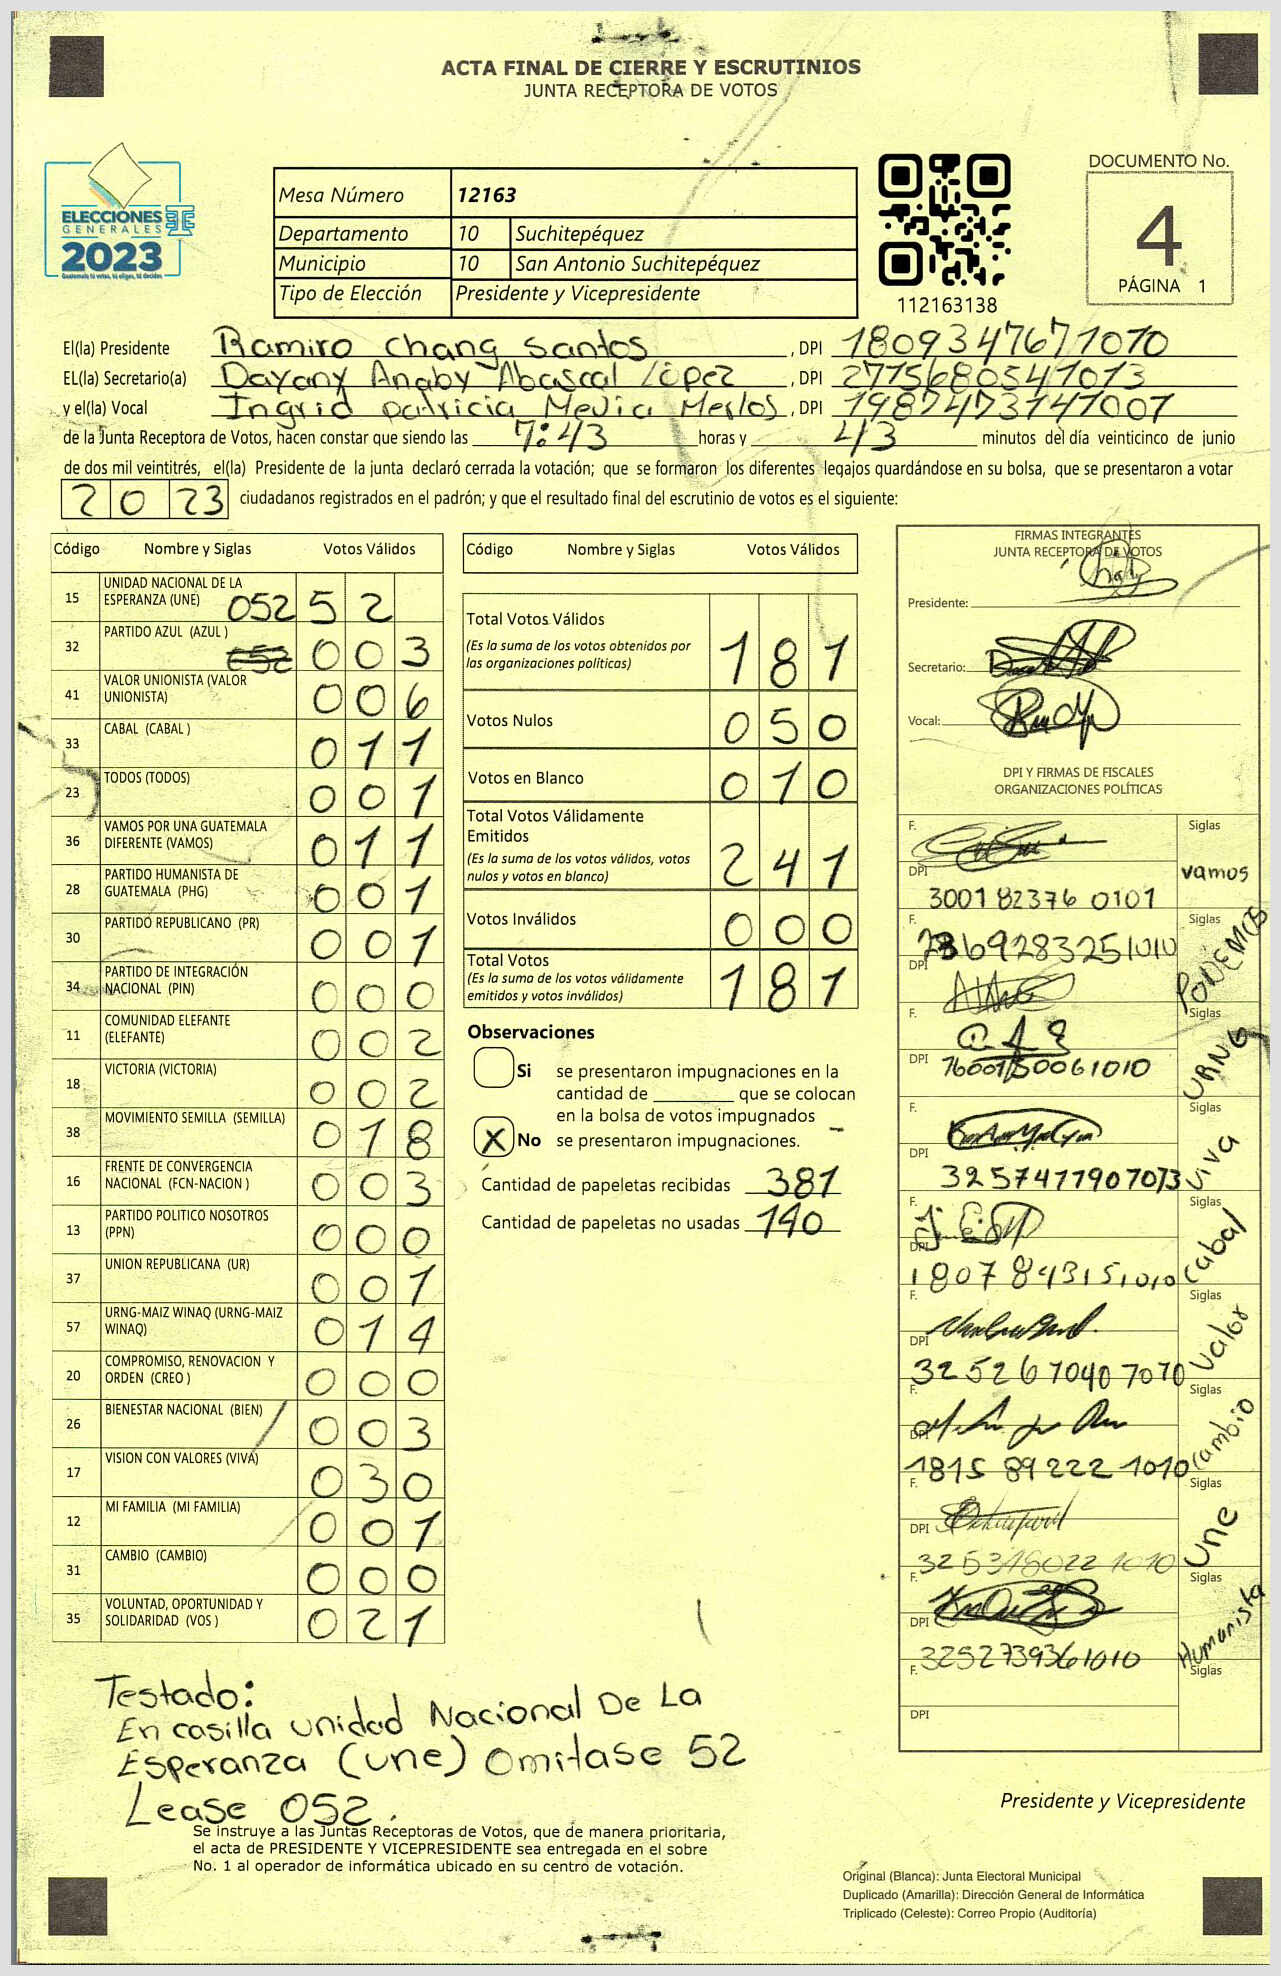 ACTA FINAL DE CIERRE Y ESCRUTINIOS
JUNTA RECEPTORA DE VOTOS
ELECCIONES
GENERALES
2023
Guatemala tú votas, tú eliges, tú decides
Mesa Número 12163
Departamento 10 Suchitepéquez
Municipio 10 San Antonio Suchitepéquez
Tipo de Elección Presidente y Vicepresidente
112163138
DOCUMENTO No.
4
PÁGINA 1
El(la) Presidente Ramiro Chang Santos, DPI 1809347671010
EL(la) Secretario(a) Dayany Anaby Abascal López, DPI 2715680541013
y el(la) Vocal Ingrid Patricia Mejia Merlos, DPI 1987473141007
de la Junta Receptora de Votos, hacen constar que siendo las 7:43 horas y 43 minutos del día veinticinco de junio
de dos mil veintitrés, el(la) Presidente de la junta declaró cerrada la votación; que se formaron los diferentes legajos guardándose en su bolsa, que se presentaron a votar
2 0 23 ciudadanos registrados en el padrón; y que el resultado final del escrutinio de votos es el siguiente:
Código Nombre y Siglas Votos Válidos
15 UNIDAD NACIONAL DE LA ESPERANZA (UNE) 052 5 2
32 PARTIDO AZUL (AZUL ) 0 0 3
41 VALOR UNIONISTA (VALOR UNIONISTA) 0 0 6
33 CABAL (CABAL ) 0 1 1
23 TODOS (TODOS) 0 0 1
36 VAMOS POR UNA GUATEMALA DIFERENTE (VAMOS) 0 1 1
28 PARTIDO HUMANISTA DE GUATEMALA (PHG) 0 0 1
30 PARTIDO REPUBLICANO (PR) 0 0 1
34 PARTIDO DE INTEGRACIÓN NACIONAL (PIN) 0 0 0
11 COMUNIDAD ELEFANTE (ELEFANTE) 0 0 2
18 VICTORIA (VICTORIA) 0 0 2
38 MOVIMIENTO SEMILLA (SEMILLA) 0 1 8
16 FRENTE DE CONVERGENCIA NACIONAL (FCN-NACION ) 0 0 3
13 PARTIDO POLITICO NOSOTROS (PPN) 0 0 0
37 UNION REPUBLICANA (UR) 0 0 1
57 URNG-MAIZ WINAQ (URNG-MAIZ WINAQ) 0 1 4
20 COMPROMISO, RENOVACION Y ORDEN (CREO ) 0 0 0
26 BIENESTAR NACIONAL (BIEN) 0 0 3
17 VISION CON VALORES (VIVA) 0 3 0
12 MI FAMILIA (MI FAMILIA) 0 0 1
31 CAMBIO (CAMBIO) 0 0 0
35 VOLUNTAD, OPORTUNIDAD Y SOLIDARIDAD (VOS ) 0 2 1
Código Nombre y Siglas Votos Válidos
Total Votos Válidos 1 8 1
(Es la suma de los votos obtenidos por
las organizaciones políticas)
Votos Nulos 0 5 0
Votos en Blanco 0 1 0
Total Votos Válidamente
Emitidos 2 4 1
(Es la suma de los votos válidos, votos
nulos y votos en blanco)
Votos Inválidos 0 0 0
Total Votos 1 8 1
(Es la suma de los votos válidamente
emitidos y votos inválidos)
Observaciones
Si se presentaron impugnaciones en la
cantidad de ________ que se colocan
en la bolsa de votos impugnados
X No se presentaron impugnaciones.
Cantidad de papeletas recibidas 381
Cantidad de papeletas no usadas 140
FIRMAS INTEGRANTES
JUNTA RECEPTORA DE VOTOS
Presidente:
Secretario:
Vocal:
DPI Y FIRMAS DE FISCALES
ORGANIZACIONES POLÍTICAS
F. Siglas
DPI 3001 82376 0101 vamos
F. Siglas
DPI PODEMOS
F. Siglas
DPI URNG
F. Siglas
DPI 3257477907073 viva
F. Siglas
DPI 1807 84315 1010 Cabal
F. Siglas
DPI 3252670407070 Valor
F. Siglas
DPI 1815 89222 1010 Cambio
F. Siglas
DPI 325318022 1010 une
F. Siglas
DPI 3252739361010 Humanista
F. Siglas
DPI
Testado:
En casilla unidad Nacional De La
Esperanza (une) Omitase 52
Lease 052.
Se instruye a las Juntas Receptoras de Votos, que de manera prioritaria,
el acta de PRESIDENTE Y VICEPRESIDENTE sea entregada en el sobre
No. 1 al operador de informática ubicado en su centro de votación.
Presidente y Vicepresidente
Original (Blanca): Junta Electoral Municipal
Duplicado (Amarilla): Dirección General de Informática
Triplicado (Celeste): Correo Propio (Auditoría)